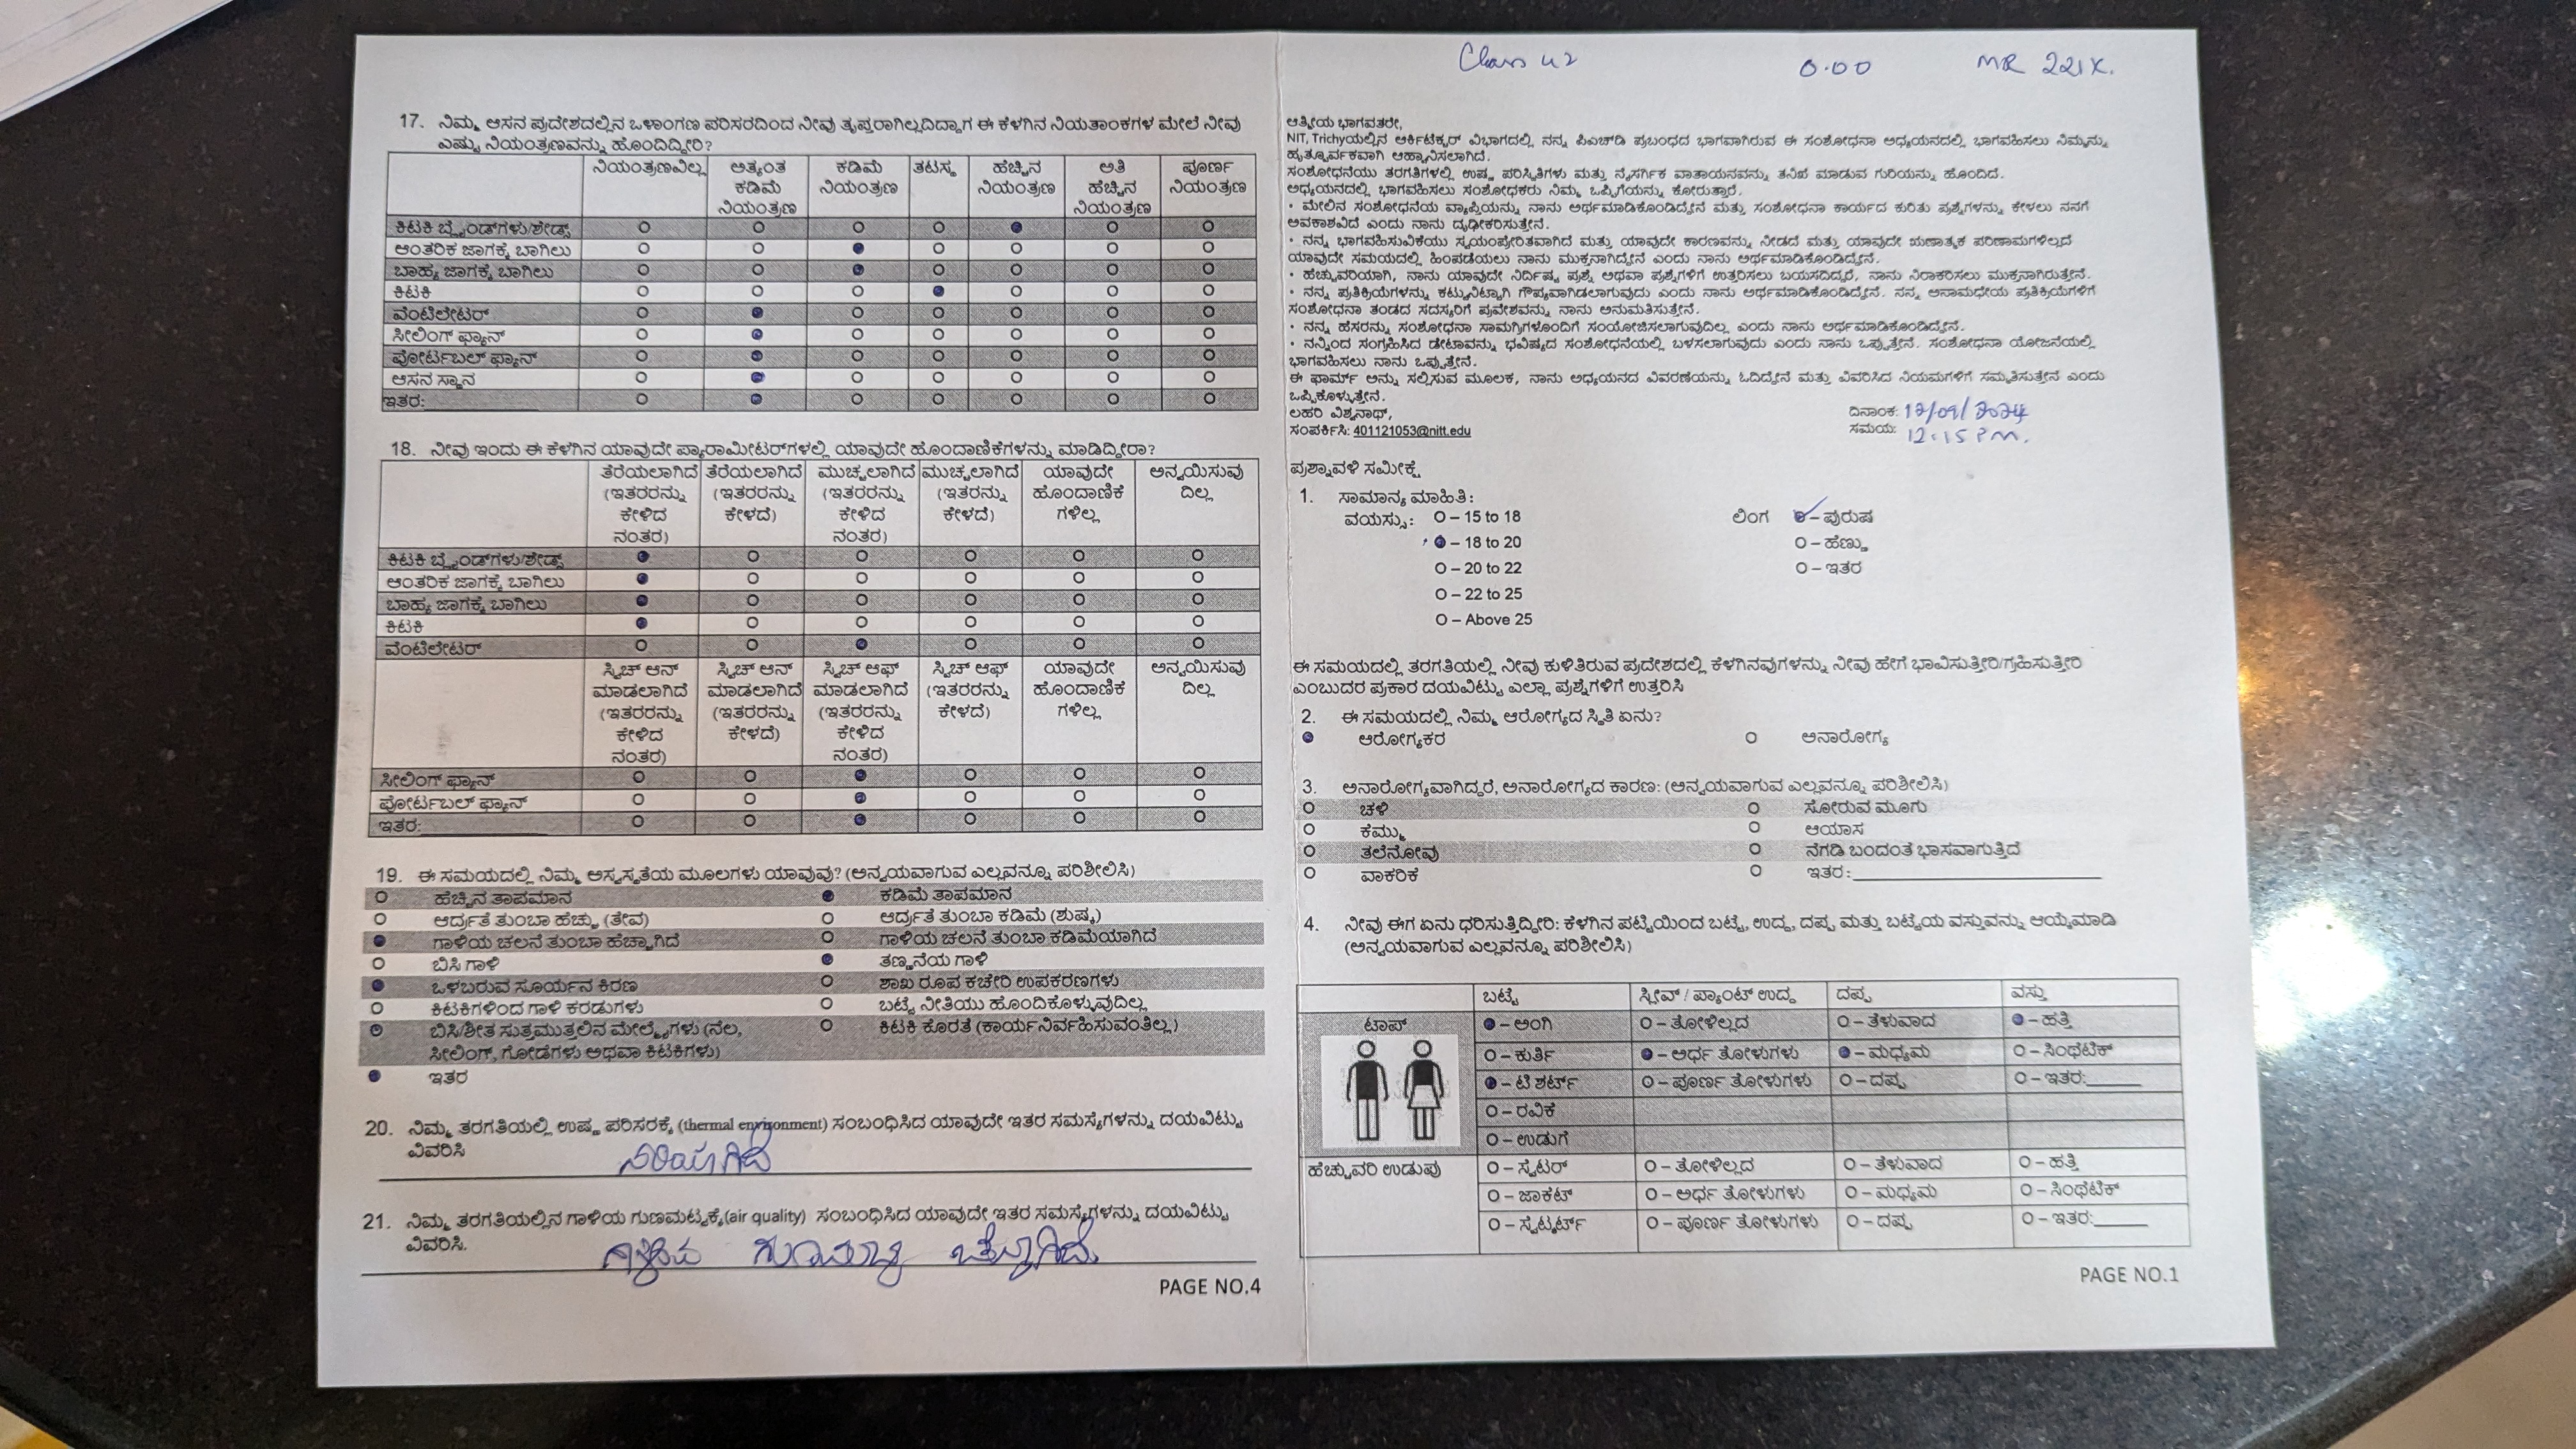 17. ನಿಮ್ಮ ಆಸನ ಪ್ರದೇಶದಲ್ಲಿನ ಒಳಾಂಗಣ ಪರಿಸರದಿಂದ ನೀವು ತೃಪ್ತರಾಗಿಲ್ಲದಿದ್ದಾಗ ಈ ಕೆಳಗಿನ ನಿಯತಾಂಕಗಳ ಮೇಲೆ ನೀವು
ಎಷ್ಟು ನಿಯಂತ್ರಣವನ್ನು ಹೊಂದಿದ್ದೀರಿ?
ನಿಯಂತ್ರಣವಿಲ್ಲ ಅತ್ಯಂತ ಕಡಿಮೆ ತಟಸ್ಥ ಹೆಚ್ಚಿನ ಅತಿ ಪೂರ್ಣ
ಕಡಿಮೆ ನಿಯಂತ್ರಣ ನಿಯಂತ್ರಣ ಹೆಚ್ಚಿನ ನಿಯಂತ್ರಣ
ನಿಯಂತ್ರಣ ನಿಯಂತ್ರಣ
ಕಿಟಕಿ ಬ್ಲೈಂಡ್‌ಗಳು/ಶೇಡ್ಸ್
ಆಂತರಿಕ ಜಾಗಕ್ಕೆ ಬಾಗಿಲು
ಬಾಹ್ಯ ಜಾಗಕ್ಕೆ ಬಾಗಿಲು
ಕಿಟಕಿ
ವೆಂಟಿಲೇಟರ್
ಸೀಲಿಂಗ್ ಫ್ಯಾನ್
ಪೋರ್ಟಬಲ್ ಫ್ಯಾನ್
ಆಸನ ಸ್ಥಾನ
ಇತರ:
18. ನೀವು ಇಂದು ಈ ಕೆಳಗಿನ ಯಾವುದೇ ಪ್ಯಾರಾಮೀಟರ್‌ಗಳಲ್ಲಿ ಯಾವುದೇ ಹೊಂದಾಣಿಕೆಗಳನ್ನು ಮಾಡಿದ್ದೀರಾ?
ತೆರೆಯಲಾಗಿದೆ ತೆರೆಯಲಾಗಿದೆ ಮುಚ್ಚಲಾಗಿದೆ ಮುಚ್ಚಲಾಗಿದೆ ಯಾವುದೇ ಅನ್ವಯಿಸುವು
(ಇತರರನ್ನು (ಇತರರನ್ನು (ಇತರರನ್ನು (ಇತರನ್ನು ಹೊಂದಾಣಿಕೆ ದಿಲ್ಲ
ಕೇಳಿದ ಕೇಳದೆ) ಕೇಳಿದ ಕೇಳದೆ) ಗಳಿಲ್ಲ
ನಂತರ) ನಂತರ)
ಕಿಟಕಿ ಬ್ಲೈಂಡ್‌ಗಳು/ಶೇಡ್ಸ್
ಆಂತರಿಕ ಜಾಗಕ್ಕೆ ಬಾಗಿಲು
ಬಾಹ್ಯ ಜಾಗಕ್ಕೆ ಬಾಗಿಲು
ಕಿಟಕಿ
ವೆಂಟಿಲೇಟರ್
ಸ್ವಿಚ್ ಆನ್ ಸ್ವಿಚ್ ಆನ್ ಸ್ವಿಚ್ ಆಫ್ ಸ್ವಿಚ್ ಆಫ್ ಯಾವುದೇ ಅನ್ವಯಿಸುವು
ಮಾಡಲಾಗಿದೆ ಮಾಡಲಾಗಿದೆ ಮಾಡಲಾಗಿದೆ (ಇತರರನ್ನು ಹೊಂದಾಣಿಕೆ ದಿಲ್ಲ
(ಇತರರನ್ನು (ಇತರರನ್ನು (ಇತರರನ್ನು ಕೇಳದೆ) ಗಳಿಲ್ಲ
ಕೇಳಿದ ಕೇಳದೆ) ಕೇಳಿದ
ನಂತರ) ನಂತರ)
ಸೀಲಿಂಗ್ ಫ್ಯಾನ್
ಪೋರ್ಟಬಲ್ ಫ್ಯಾನ್
ಇತರ:
19. ಈ ಸಮಯದಲ್ಲಿ ನಿಮ್ಮ ಅಸ್ವಸ್ಥತೆಯ ಮೂಲಗಳು ಯಾವುವು? (ಅನ್ವಯವಾಗುವ ಎಲ್ಲವನ್ನೂ ಪರಿಶೀಲಿಸಿ)
ಹೆಚ್ಚಿನ ತಾಪಮಾನ ಕಡಿಮೆ ತಾಪಮಾನ
ಆರ್ದ್ರತೆ ತುಂಬಾ ಹೆಚ್ಚು (ತೇವ) ಆರ್ದ್ರತೆ ತುಂಬಾ ಕಡಿಮೆ (ಶುಷ್ಕ)
ಗಾಳಿಯ ಚಲನೆ ತುಂಬಾ ಹೆಚ್ಚಾಗಿದೆ ಗಾಳಿಯ ಚಲನೆ ತುಂಬಾ ಕಡಿಮೆಯಾಗಿದೆ
ಬಿಸಿ ಗಾಳಿ ತಣ್ಣನೆಯ ಗಾಳಿ
ಒಳಬರುವ ಸೂರ್ಯನ ಕಿರಣ ಶಾಖ ರೂಪ ಕಚೇರಿ ಉಪಕರಣಗಳು
ಕಿಟಕಿಗಳಿಂದ ಗಾಳಿ ಕರಡುಗಳು ಬಟ್ಟೆ ನೀತಿಯು ಹೊಂದಿಕೊಳ್ಳುವುದಿಲ್ಲ
ಬಿಸಿ/ಶೀತ ಸುತ್ತಮುತ್ತಲಿನ ಮೇಲ್ಮೈಗಳು (ನೆಲ, ಕಿಟಕಿ ಕೊರತೆ (ಕಾರ್ಯನಿರ್ವಹಿಸುವಂತಿಲ್ಲ)
ಸೀಲಿಂಗ್, ಗೋಡೆಗಳು ಅಥವಾ ಕಿಟಕಿಗಳು)
ಇತರ
20. ನಿಮ್ಮ ತರಗತಿಯಲ್ಲಿ ಉಷ್ಣ ಪರಿಸರಕ್ಕೆ (thermal environment) ಸಂಬಂಧಿಸಿದ ಯಾವುದೇ ಇತರ ಸಮಸ್ಯೆಗಳನ್ನು ದಯವಿಟ್ಟು
ವಿವರಿಸಿ
ಸರಿಯಾಗಿದೆ
21. ನಿಮ್ಮ ತರಗತಿಯಲ್ಲಿನ ಗಾಳಿಯ ಗುಣಮಟ್ಟಕ್ಕೆ(air quality) ಸಂಬಂಧಿಸಿದ ಯಾವುದೇ ಇತರ ಸಮಸ್ಯೆಗಳನ್ನು ದಯವಿಟ್ಟು
ವಿವರಿಸಿ.
PAGE NO.4
Class 42 0.00 MR 221X.
ಆತ್ಮೀಯ ಭಾಗವತರೇ,
NIT, Trichyಯಲ್ಲಿನ ಆರ್ಕಿಟೆಕ್ಚರ್ ವಿಭಾಗದಲ್ಲಿ ನನ್ನ ಪಿಎಚ್‌ಡಿ ಪ್ರಬಂಧದ ಭಾಗವಾಗಿರುವ ಈ ಸಂಶೋಧನಾ ಅಧ್ಯಯನದಲ್ಲಿ ಭಾಗವಹಿಸಲು ನಿಮ್ಮನ್ನು
ಹೃತ್ಪೂರ್ವಕವಾಗಿ ಆಹ್ವಾನಿಸಲಾಗಿದೆ.
ಸಂಶೋಧನೆಯು ತರಗತಿಗಳಲ್ಲಿ ಉಷ್ಣ ಪರಿಸ್ಥಿತಿಗಳು ಮತ್ತು ನೈಸರ್ಗಿಕ ವಾತಾಯನವನ್ನು ತನಿಖೆ ಮಾಡುವ ಗುರಿಯನ್ನು ಹೊಂದಿದೆ.
ಅಧ್ಯಯನದಲ್ಲಿ ಭಾಗವಹಿಸಲು ಸಂಶೋಧಕರು ನಿಮ್ಮ ಒಪ್ಪಿಗೆಯನ್ನು ಕೋರುತ್ತಾರೆ.
• ಮೇಲಿನ ಸಂಶೋಧನೆಯ ವ್ಯಾಪ್ತಿಯನ್ನು ನಾನು ಅರ್ಥಮಾಡಿಕೊಂಡಿದ್ದೇನೆ ಮತ್ತು ಸಂಶೋಧನಾ ಕಾರ್ಯದ ಕುರಿತು ಪ್ರಶ್ನೆಗಳನ್ನು ಕೇಳಲು ನನಗೆ
ಅವಕಾಶವಿದೆ ಎಂದು ನಾನು ದೃಢೀಕರಿಸುತ್ತೇನೆ.
• ನನ್ನ ಭಾಗವಹಿಸುವಿಕೆಯು ಸ್ವಯಂಪ್ರೇರಿತವಾಗಿದೆ ಮತ್ತು ಯಾವುದೇ ಕಾರಣವನ್ನು ನೀಡದೆ ಮತ್ತು ಯಾವುದೇ ಋಣಾತ್ಮಕ ಪರಿಣಾಮಗಳಿಲ್ಲದೆ
ಯಾವುದೇ ಸಮಯದಲ್ಲಿ ಹಿಂಪಡೆಯಲು ನಾನು ಮುಕ್ತನಾಗಿದ್ದೇನೆ ಎಂದು ನಾನು ಅರ್ಥಮಾಡಿಕೊಂಡಿದ್ದೇನೆ.
• ಹೆಚ್ಚುವರಿಯಾಗಿ, ನಾನು ಯಾವುದೇ ನಿರ್ದಿಷ್ಟ ಪ್ರಶ್ನೆ ಅಥವಾ ಪ್ರಶ್ನೆಗಳಿಗೆ ಉತ್ತರಿಸಲು ಬಯಸದಿದ್ದರೆ, ನಾನು ನಿರಾಕರಿಸಲು ಮುಕ್ತನಾಗಿರುತ್ತೇನೆ.
• ನನ್ನ ಪ್ರತಿಕ್ರಿಯೆಗಳನ್ನು ಕಟ್ಟುನಿಟ್ಟಾಗಿ ಗೌಪ್ಯವಾಗಿಡಲಾಗುವುದು ಎಂದು ನಾನು ಅರ್ಥಮಾಡಿಕೊಂಡಿದ್ದೇನೆ. ನನ್ನ ಅನಾಮಧೇಯ ಪ್ರತಿಕ್ರಿಯೆಗಳಿಗೆ
ಸಂಶೋಧನಾ ತಂಡದ ಸದಸ್ಯರಿಗೆ ಪ್ರವೇಶವನ್ನು ನಾನು ಅನುಮತಿಸುತ್ತೇನೆ.
• ನನ್ನ ಹೆಸರನ್ನು ಸಂಶೋಧನಾ ಸಾಮಗ್ರಿಗಳೊಂದಿಗೆ ಸಂಯೋಜಿಸಲಾಗುವುದಿಲ್ಲ ಎಂದು ನಾನು ಅರ್ಥಮಾಡಿಕೊಂಡಿದ್ದೇನೆ.
• ನನ್ನಿಂದ ಸಂಗ್ರಹಿಸಿದ ಡೇಟಾವನ್ನು ಭವಿಷ್ಯದ ಸಂಶೋಧನೆಯಲ್ಲಿ ಬಳಸಲಾಗುವುದು ಎಂದು ನಾನು ಒಪ್ಪುತ್ತೇನೆ. ಸಂಶೋಧನಾ ಯೋಜನೆಯಲ್ಲಿ
ಭಾಗವಹಿಸಲು ನಾನು ಒಪ್ಪುತ್ತೇನೆ.
ಈ ಫಾರ್ಮ್ ಅನ್ನು ಸಲ್ಲಿಸುವ ಮೂಲಕ, ನಾನು ಅಧ್ಯಯನದ ವಿವರಣೆಯನ್ನು ಓದಿದ್ದೇನೆ ಮತ್ತು ವಿವರಿಸಿದ ನಿಯಮಗಳಿಗೆ ಸಮ್ಮತಿಸುತ್ತೇನೆ ಎಂದು
ಒಪ್ಪಿಕೊಳ್ಳುತ್ತೇನೆ.
ಲಹರಿ ವಿಶ್ವನಾಥ್,
ಸಂಪರ್ಕಿಸಿ: 401121053@nitt.edu
ದಿನಾಂಕ: 12/09/2024
ಸಮಯ: 12:15 PM.
ಪ್ರಶ್ನಾವಳಿ ಸಮೀಕ್ಷೆ
1. ಸಾಮಾನ್ಯ ಮಾಹಿತಿ:
ವಯಸ್ಸು: O – 15 to 18 ಲಿಂಗ – ಪುರುಷ
– 18 to 20 O – ಹೆಣ್ಣು
O – 20 to 22 O – ಇತರ
O – 22 to 25
O – Above 25
ಈ ಸಮಯದಲ್ಲಿ ತರಗತಿಯಲ್ಲಿ ನೀವು ಕುಳಿತಿರುವ ಪ್ರದೇಶದಲ್ಲಿ ಕೆಳಗಿನವುಗಳನ್ನು ನೀವು ಹೇಗೆ ಭಾವಿಸುತ್ತೀರಿ/ಗ್ರಹಿಸುತ್ತೀರಿ
ಎಂಬುದರ ಪ್ರಕಾರ ದಯವಿಟ್ಟು ಎಲ್ಲಾ ಪ್ರಶ್ನೆಗಳಿಗೆ ಉತ್ತರಿಸಿ
2. ಈ ಸಮಯದಲ್ಲಿ ನಿಮ್ಮ ಆರೋಗ್ಯದ ಸ್ಥಿತಿ ಏನು?
ಆರೋಗ್ಯಕರ ಅನಾರೋಗ್ಯ
3. ಅನಾರೋಗ್ಯವಾಗಿದ್ದರೆ, ಅನಾರೋಗ್ಯದ ಕಾರಣ: (ಅನ್ವಯವಾಗುವ ಎಲ್ಲವನ್ನೂ ಪರಿಶೀಲಿಸಿ)
ಚಳಿ ಸೋರುವ ಮೂಗು
ಕೆಮ್ಮು ಆಯಾಸ
ತಲೆನೋವು ನೆಗಡಿ ಬಂದಂತೆ ಭಾಸವಾಗುತ್ತಿದೆ
ವಾಕರಿಕೆ ಇತರ:
4. ನೀವು ಈಗ ಏನು ಧರಿಸುತ್ತಿದ್ದೀರಿ: ಕೆಳಗಿನ ಪಟ್ಟಿಯಿಂದ ಬಟ್ಟೆ, ಉದ್ದ, ದಪ್ಪ ಮತ್ತು ಬಟ್ಟೆಯ ವಸ್ತುವನ್ನು ಆಯ್ಕೆಮಾಡಿ
(ಅನ್ವಯವಾಗುವ ಎಲ್ಲವನ್ನೂ ಪರಿಶೀಲಿಸಿ)
ಬಟ್ಟೆ ಸ್ಲೀವ್ / ಪ್ಯಾಂಟ್ ಉದ್ದ ದಪ್ಪ ವಸ್ತು
ಟಾಪ್ – ಅಂಗಿ O – ತೋಳಿಲ್ಲದ O – ತೆಳುವಾದ – ಹತ್ತಿ
O – ಕುರ್ತಿ – ಅರ್ಧ ತೋಳುಗಳು – ಮಧ್ಯಮ O – ಸಿಂಥೆಟಿಕ್
– ಟಿ ಶರ್ಟ್ O – ಪೂರ್ಣ ತೋಳುಗಳು O – ದಪ್ಪ O – ಇತರ:
O – ರವಿಕೆ
O – ಉಡುಗೆ
ಹೆಚ್ಚುವರಿ ಉಡುಪು O – ಸ್ವೆಟರ್ O – ತೋಳಿಲ್ಲದ O – ತೆಳುವಾದ O – ಹತ್ತಿ
O – ಜಾಕೆಟ್ O – ಅರ್ಧ ತೋಳುಗಳು O – ಮಧ್ಯಮ O – ಸಿಂಥೆಟಿಕ್
O – ಸ್ವೆಟ್ಶರ್ಟ್ O – ಪೂರ್ಣ ತೋಳುಗಳು O – ದಪ್ಪ O – ಇತರ:
PAGE NO.1